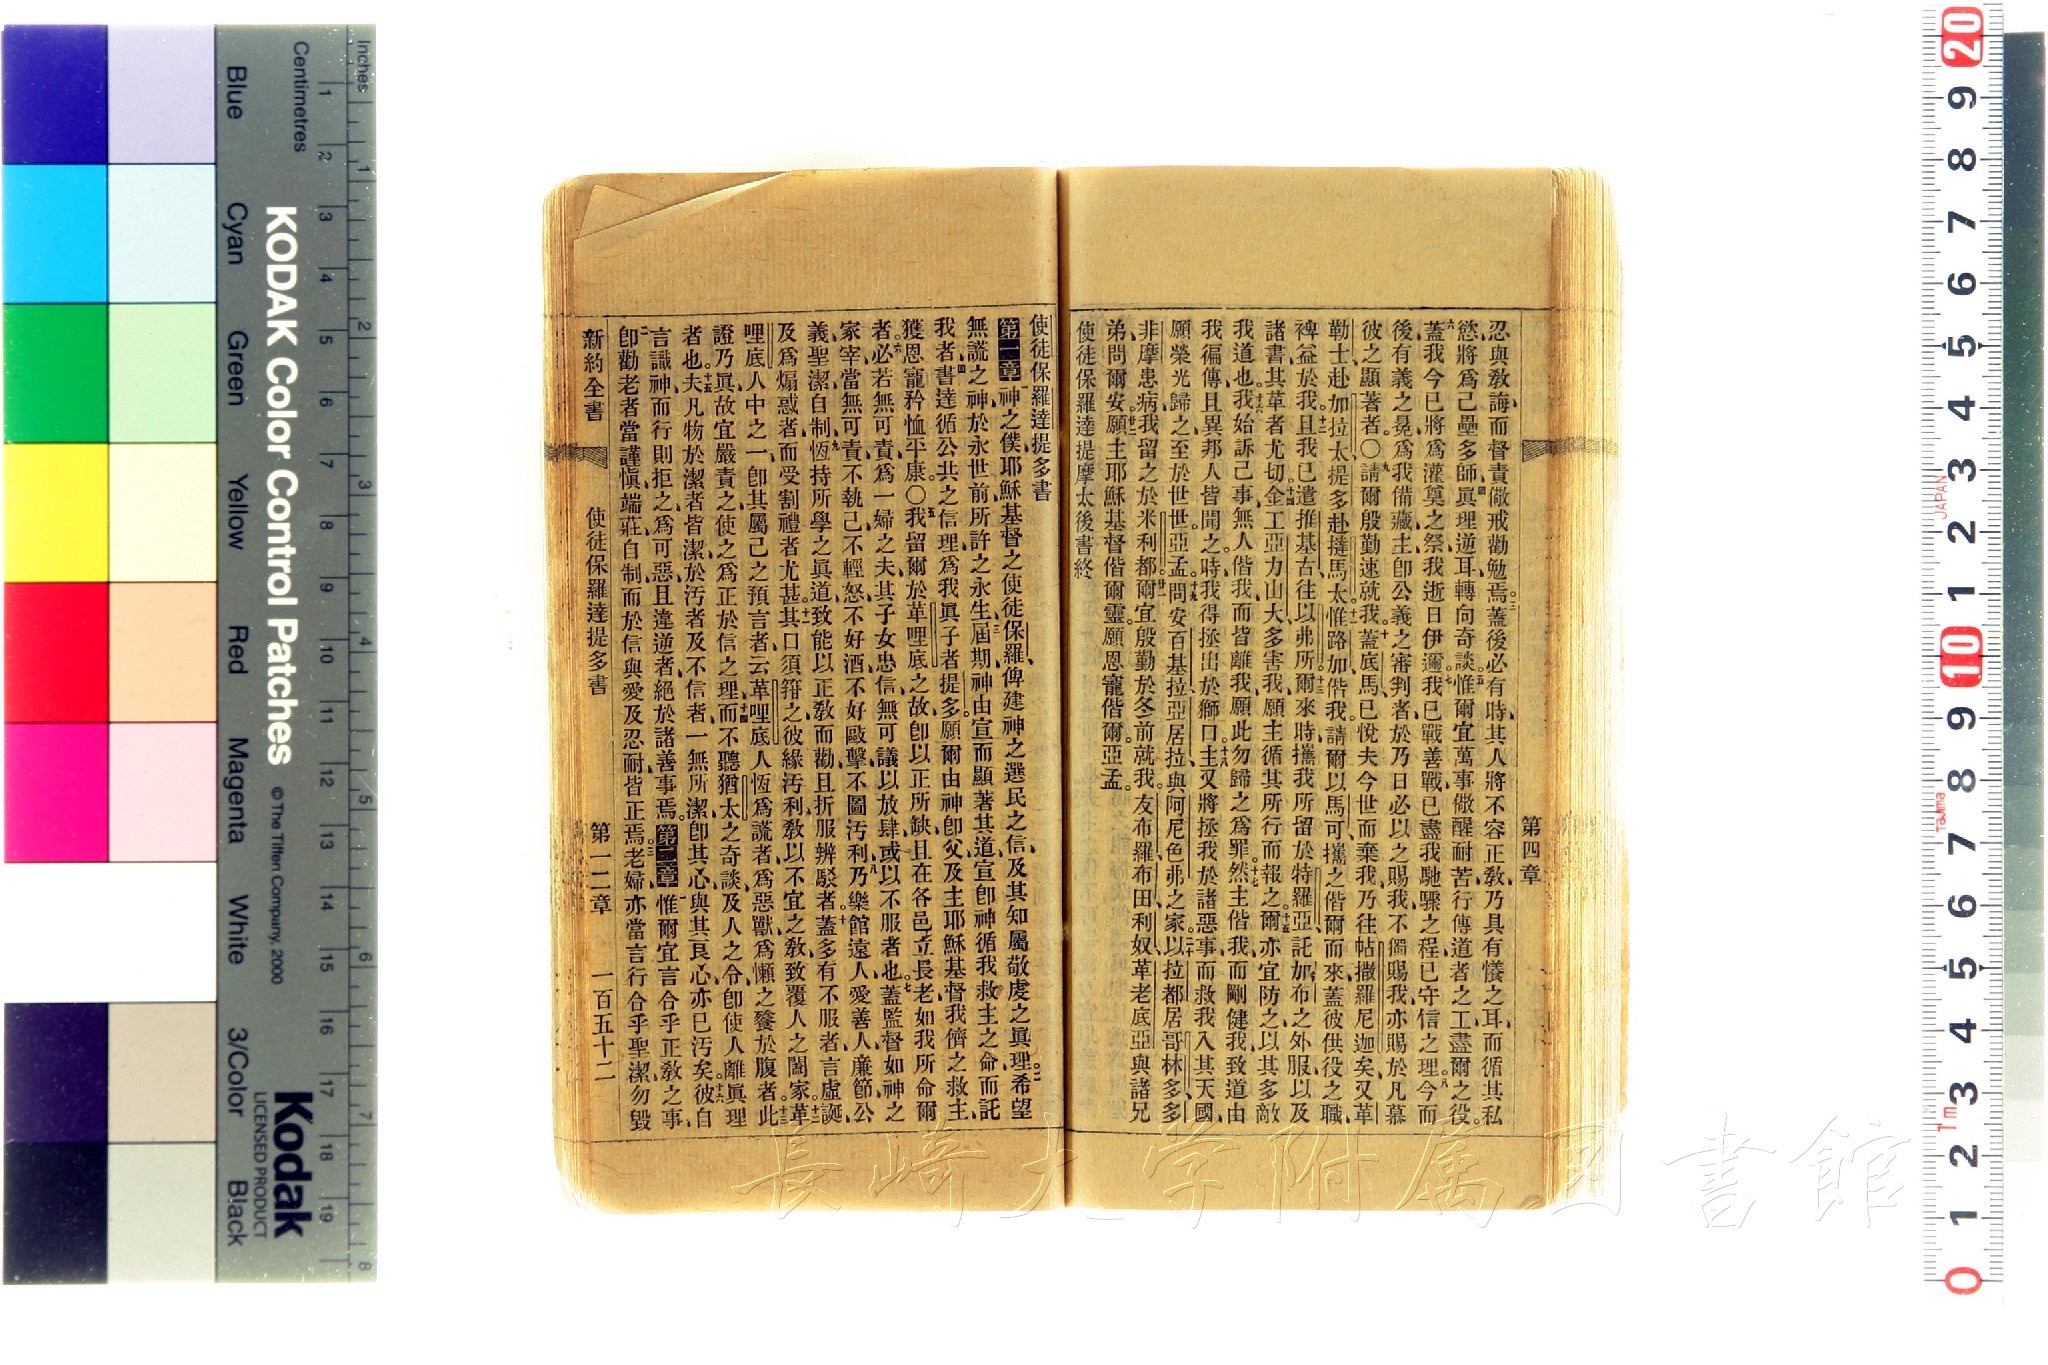 忍與教誨而督責儆戒勸勉焉。三蓋後必有時其人將不容正教乃具有癢之耳而循其私
慾將爲己壘多師四眞理逆耳轉向奇談五惟爾宜萬事儆醒耐苦行傳道者之工盡爾之役。
六蓋我今已將爲灌奠之祭我逝日伊邇七我已戰善戰已盡我馳驟之程已守信之理八今而
後有義之冕爲我備藏主卽公義之審判者於乃日必以之賜我不獨賜我亦賜於凡慕
彼之顯著者〇九請爾殷勤速就我十蓋底馬已悅夫今世而棄我乃往帖撒羅尼迦矣又革
勒士赴加拉太提多赴撻馬太十一惟路加偕我請爾以馬可攜之偕爾而來蓋彼供役之職
裨益於我且十二我已遣推基古往以弗所十三爾來時攜我所留於特羅亞託加布之外服以及
諸書其革者尤切十四金工亞力山大多害我願主循其所行而報之十五爾亦宜防之以其多敵
我道也十六我始訴己事無人偕我而皆離我願此勿歸之爲罪十七然主偕我而剛健我致道由
我徧傳且異邦人皆聞之時我得拯出於獅口十八主又將拯我於諸惡事而救我入其天國
願榮光歸之至於世世亞孟十九問安百基拉亞居拉與阿尼色弗之家二十以拉都居哥林多多
非摩患病我留之於米利都廿一爾宜殷勤於冬前就我友布羅布田利奴革老底亞與諸兄
弟問爾安廿二願主耶穌基督偕爾靈願恩寵偕爾亞孟。
使徒保羅達提摩太後書終
第四章
使徒保羅達提多書
第一章一神之僕耶穌基督之使徒保羅俾建神之選民之信及其知屬敬虔之眞理二希望
無謊之神於永世前所許之永生三屆期神由宣而顯著其道宣卽神循我救主之命而託
我者四書達循公共之信理爲我眞子者提多願爾由神卽父及主耶穌基督我儕之救主
獲恩寵矜恤平康〇五我留爾於革哩底之故卽以正所缺且在各邑立長老如我所命爾
者六必若無可責爲一婦之夫其子女忠信無可議以放肆或以不服者也七蓋監督如神之
家宰當無可責不執己不輕怒不好酒不好毆擊不圖汚利八乃樂館遠人愛善人廉節公
義聖潔自制九恆持所學之眞道致能以正教而勸且折服辨駁者十蓋多有不服者言虛誕
及爲煽惑者而受割禮者尤甚十一其口須箝之彼緣汚利教以不宜之教致覆人之闔家十二革
哩底人中之一卽其屬己之預言者云革哩底人恆爲謊者爲惡獸爲懶之餮於腹者十三此
證乃眞故宜嚴責之使之爲正於信之理十四而不聽猶太之奇談及人之令卽使人離眞理
者也十五夫凡物於潔者皆潔於汚者及不信者一無所潔卽其心與其良心亦已汚矣十六彼自
言識神而行則拒之爲可惡且違逆者絕於諸善事焉。第二章一惟爾宜言合乎正教之事
二卽勸老者當謹愼端莊自制而於信與愛及忍耐皆正焉三老婦亦當言行合乎聖潔勿毀
新約全書 使徒保羅達提多書 第一二章 一百五十二
Inches
Centimetres
Blue Cyan Green Yellow Red Magenta White 3/Color Black
KODAK Color Control Patches © The Tiffen Company, 2000
Kodak
LICENSED PRODUCT
JAPAN
Tajima
Tm
長崎大学附属図書館